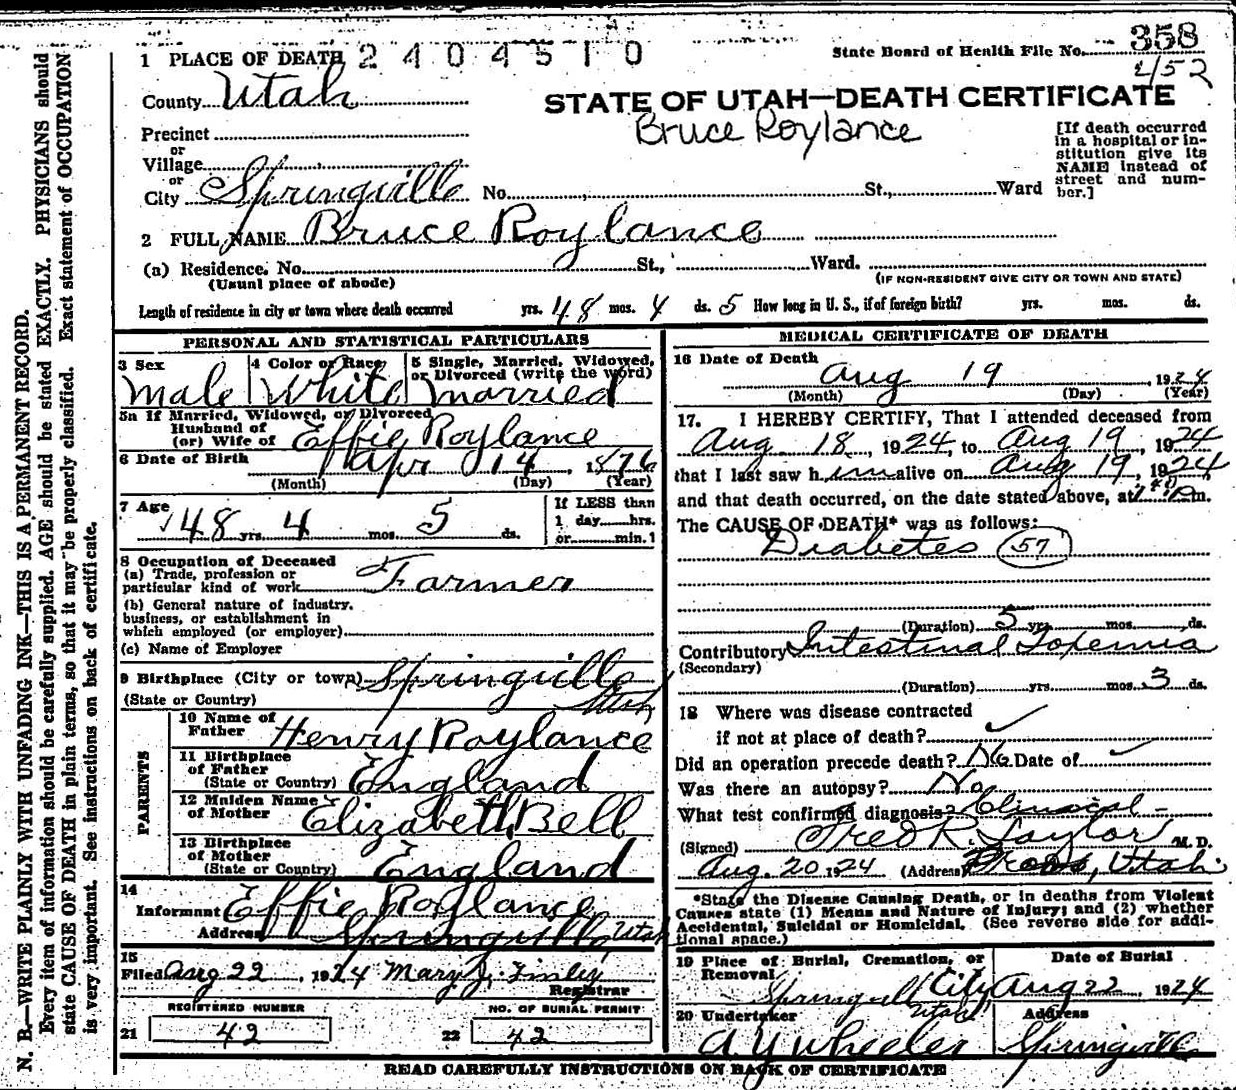 2404510
State Board of Health File No. 358
452
1 PLACE OF DEATH
County Utah
STATE OF UTAH—DEATH CERTIFICATE
Bruce Roylance
Precinct
or
Village
or
City Springville No. St., Ward
[If death occurred
in a hospital or in-
stitution give its
NAME instead of
street and num-
ber.]
2 FULL NAME Bruce Roylance
(a) Residence. No. St., Ward.
(Usual place of abode)
(IF NON-RESIDENT GIVE CITY OR TOWN AND STATE)
Length of residence in city or town where death occurred yrs. 48 mos. 4 ds. 5 How long in U. S., if of foreign birth? yrs. mos. ds.
PERSONAL AND STATISTICAL PARTICULARS
3 Sex
Male
4 Color or Race
White
5 Single, Married, Widowed,
or Divorced (write the word)
Married
5a If Married, Widowed, or Divorced
Husband of
(or) Wife of Effie Roylance
6 Date of Birth Apr 14, 1876
(Month) (Day) (Year)
7 Age
48 yrs. 4 mos. 5 ds.
If LESS than
1 day hrs.
or min.
8 Occupation of Deceased
(a) Trade, profession or
particular kind of work Farmer
(b) General nature of industry,
business, or establishment in
which employed (or employer)
(c) Name of Employer
9 Birthplace (City or town) Springville
(State or Country) Utah
PARENTS
10 Name of
Father Henry Roylance
11 Birthplace
of Father
(State or Country) England
12 Maiden Name
of Mother Elizabeth Bell
13 Birthplace
of Mother
(State or Country) England
14
Informant Effie Roylance
Address Springville Utah
15
Filed Aug 22, 1924 Mary J. Finley
Registrar
REGISTERED NUMBER
21 42
NO. OF BURIAL PERMIT
22 42
MEDICAL CERTIFICATE OF DEATH
16 Date of Death
Aug 19 1924
(Month) (Day) (Year)
17. I HEREBY CERTIFY, That I attended deceased from
Aug 18, 1924, to Aug 19, 1924
that I last saw him alive on Aug 19, 1924
and that death occurred, on the date stated above, at m.
The CAUSE OF DEATH* was as follows:
Diabetes 57
(Duration) 5 yrs. mos. ds.
Contributory Intestinal Toxemia
(Secondary)
(Duration) yrs. mos. 3 ds.
18 Where was disease contracted
if not at place of death? ✓
Did an operation precede death? No. Date of ✓
Was there an autopsy? No
What test confirmed diagnosis? Clinical -
(Signed) Fred R. Taylor M. D.
Aug. 20 1924 (Address) Provo, Utah.
*State the Disease Causing Death, or in deaths from Violent
Causes state (1) Means and Nature of Injury; and (2) whether
Accidental, Suicidal or Homicidal. (See reverse side for addi-
tional space.)
19 Place of Burial, Cremation, or
Removal
Springville City
Utah
Date of Burial
Aug 22, 1924
20 Undertaker
A Y Wheeler
Address
Springville
READ CAREFULLY INSTRUCTIONS ON BACK OF CERTIFICATE
N. B.—WRITE PLAINLY WITH UNFADING INK—THIS IS A PERMANENT RECORD.
Every item of information should be carefully supplied. AGE should be stated EXACTLY. PHYSICIANS should
state CAUSE OF DEATH in plain terms, so that it may be properly classified. Exact statement of OCCUPATION
is very important. See instructions on back of certificate.